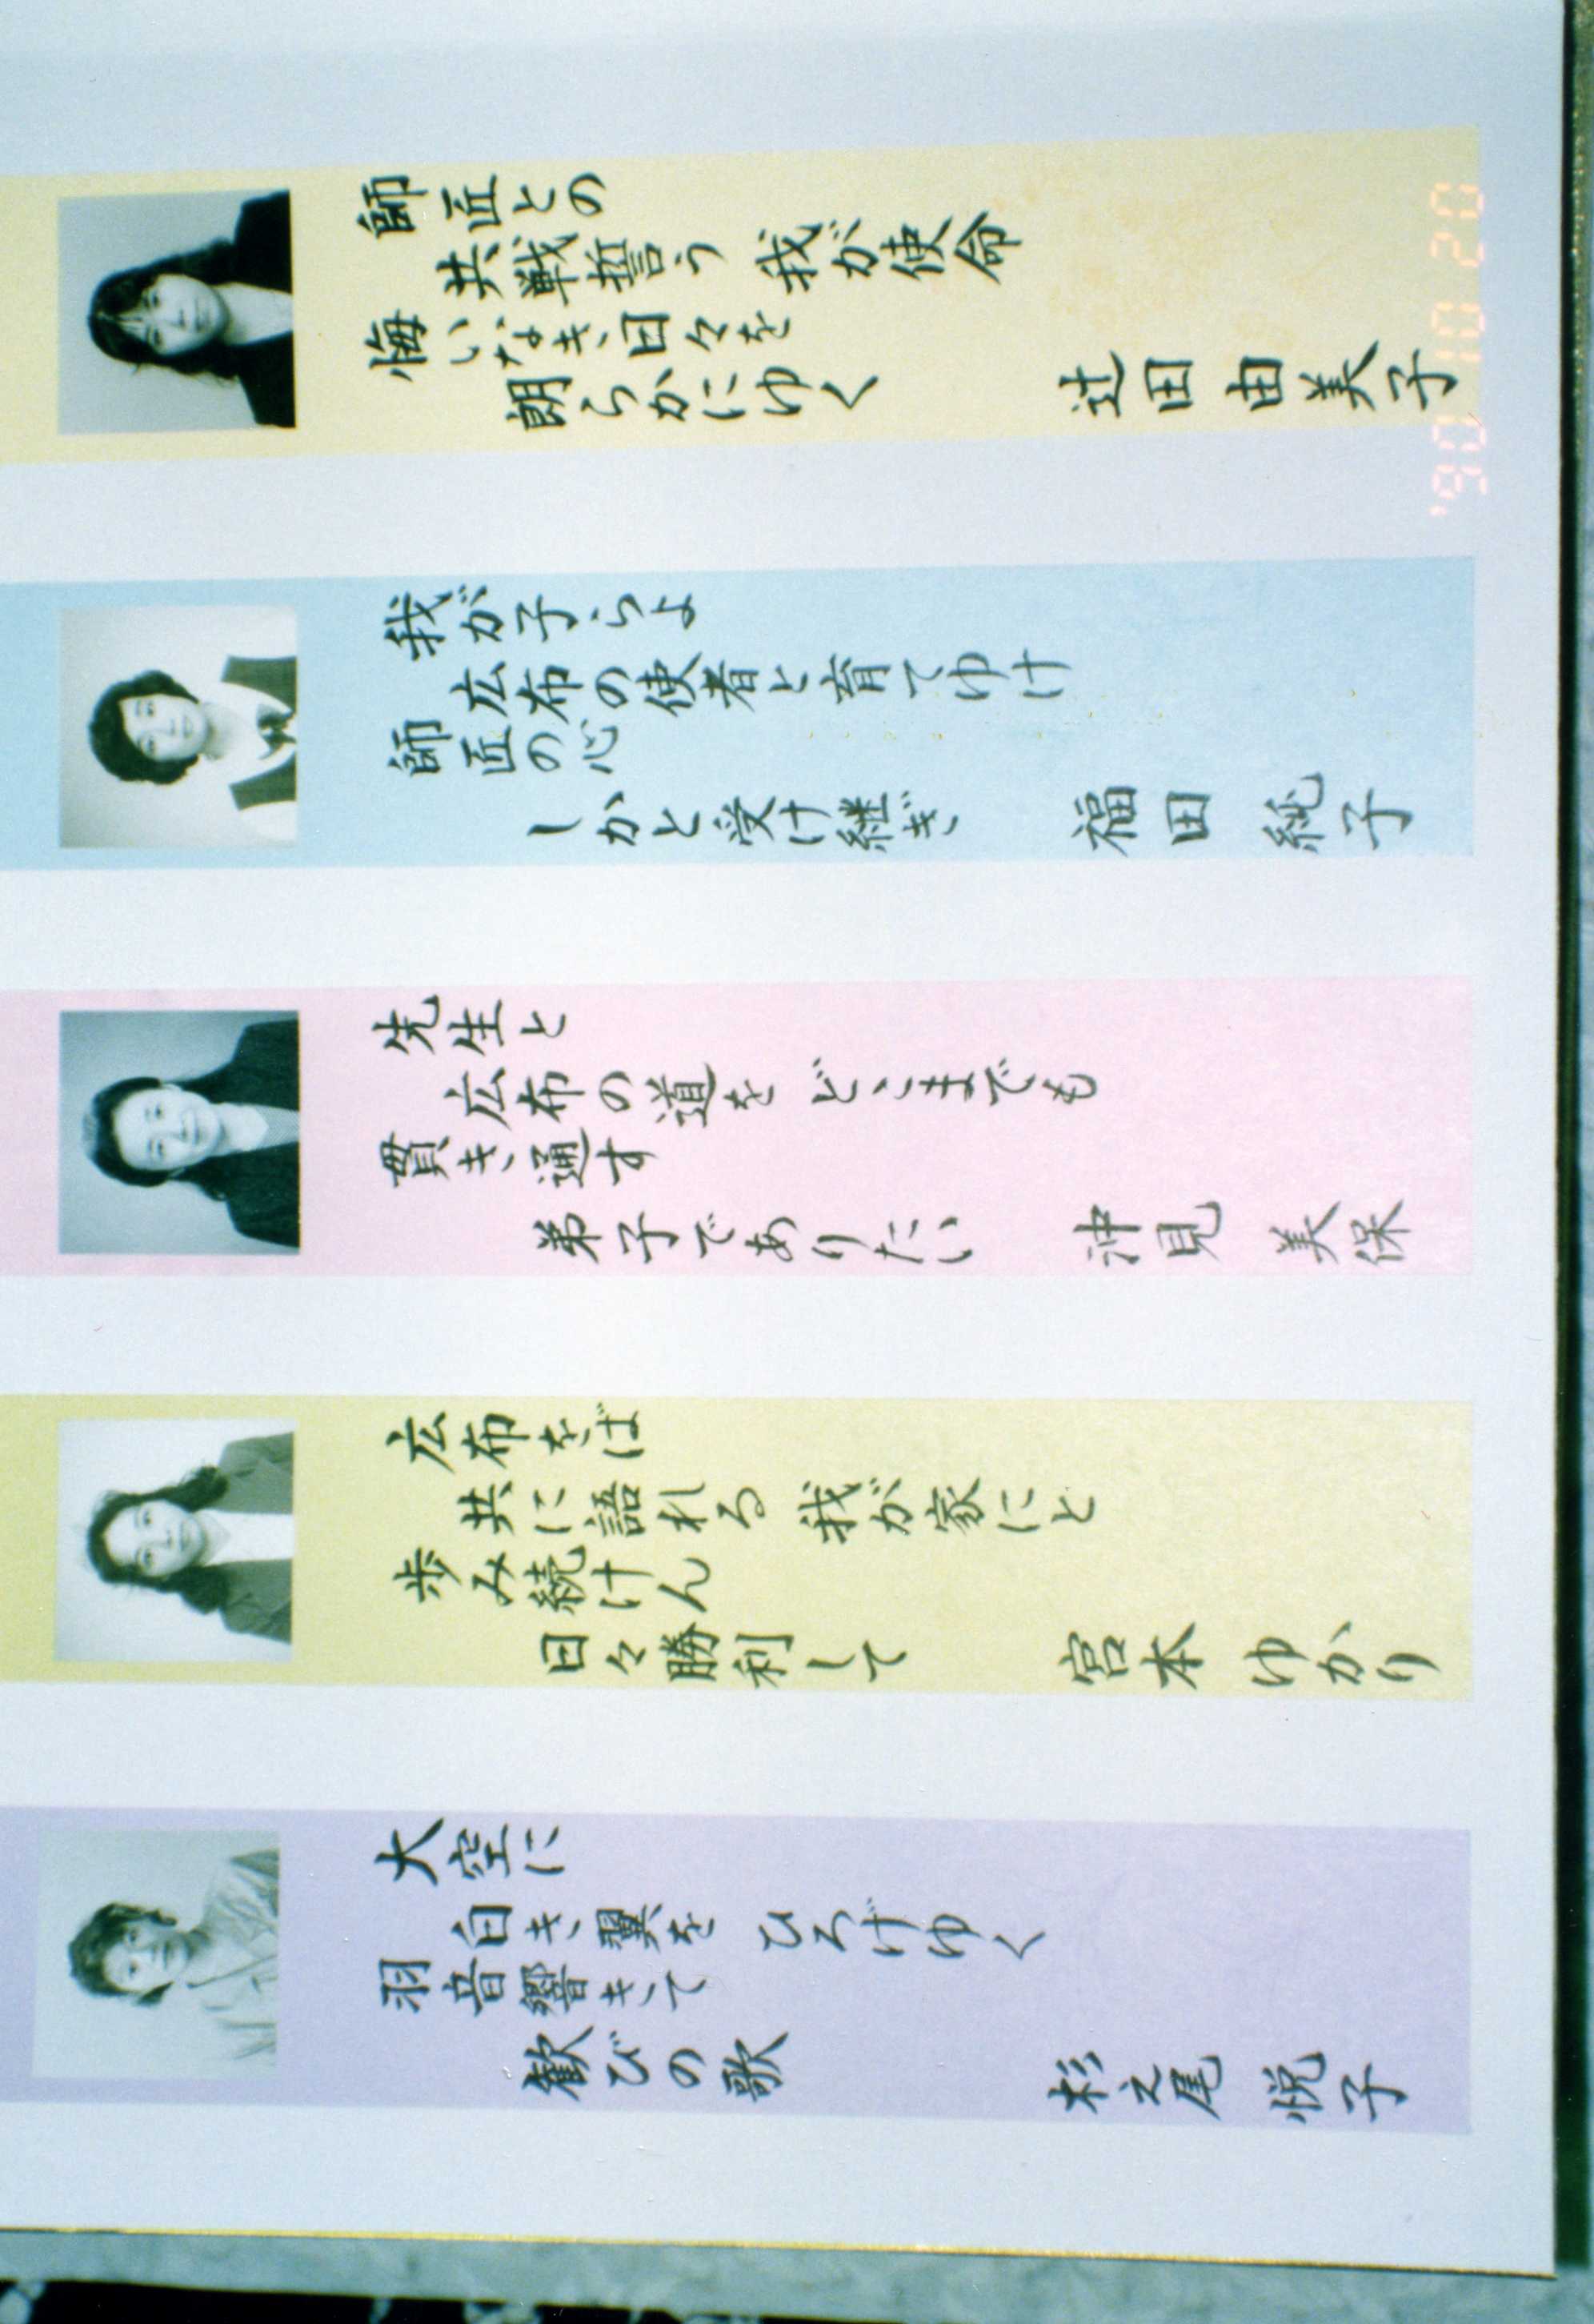 師匠との
共戦誓う 我が使命
悔いなき日々を
朗らかにゆく
辻田 由美子
我が子らよ
広布の使者と育てゆけ
師匠の心
しかと受け継ぎ
福田 純子
先生と
広布の道を どこまでも
貫き通す
弟子でありたい
沖見 美保
広布をば
共に語れる 我が家にと
歩み続けん
日々勝利して
宮本 ゆかり
大空に
白き翼を ひろげゆく
羽音響きて
歓びの歌
杉之尾 悦子
'90 10 20